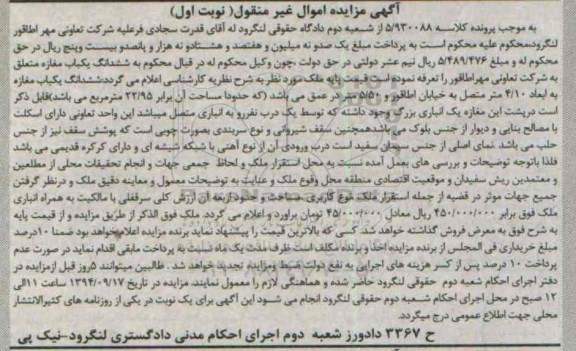 آگهی مزایده اموال غیر منقول( نوبت اول)
به موجب پرونده کلاسه ۵/۹۳۰۰۸۸ از شعبه دوم دادگاه حقوقی لنگرود له آقای قدرت سجادی فرعلیه شرکت تعاونی مهر اطاقور
لنگرود،محکوم علیه محکوم است به پرداخت مبلغ یک صدو نه میلیون و هفتصد و هشتادو نه هزار و پانصدو بیست وپنج ریال در حق
محکوم له و مبلغ ۵/۴۸۹/۴۷۶ ریال نیم عشر دولتی در حق دولت ،چون وکیل محکوم له در قبال محکوم به ششدانگ یکباب مغازه متعلق
به شرکت تعاونی مهراطاقور را تعرفه نموده است قیمت پایه ملک مورد نظر به شرح نظریه کارشناسی اعلام می گردد:ششدانگ یکباب مغازه
به ابعاد ۴/۱۰ متر متصل به خیابان اطاقور و ۵/۵۰ متر در عمق می باشد (که حدودا مساحت آن برابر ۲۲/۹۵ مترمربع می باشد)قابل ذکر
است درپشت این مغازه یک انباری بزرگ وجود داشته که توسط یک درب نفررو به انباری متصل میباشد این واحد تعاونی دارای اسکلت
با مصالح بنایی و دیوار از جنس بلوک می باشدهمچنین سقف شیروانی و نوع سربندی بصورت چوبی است که پوشش سقف نیز از جنس
حلب می باشد نمای اصلی از جنس سیمان سفید است درب ورودی آن از نوع آهنی با شبکه شیشه ای و دارای کرکره قدیمی می باشد
فلذا باتوجه توضیحات و بررسی های بعمل آمده نسبت به محل استقرار ملک و لحاظ جمیع جهات و انجام تحقیقات محلی از مطلعین
و معتمدین ریش سفیدان و موقعیت اقتصادی منطقه محل وقوع ملک و عنایت به توضیحات معمول و معاینه دقیق ملک و درنظر گرفتن
جمیع جهات موثر در قضیه از جمله استقرار ملک نوع کاربری مساحت و حدود اربعه آن ارزش کلی سرقفلی با مالکیت به همراه انباری
ملک فوق برابر ۴۵۰/۰۰۰/۰۰۰ ریال معادل ۴۵/۰۰۰/۰۰۰ تومان براورد و اعلام می گردد. ملک فوق الذکر از طریق مزایده و از قیمت پایه
به شرح فوق به معرض فروش گذاشته خواهد شد. کسی که بالاترین قیمت را پیشنهاد نماید برنده مزایده اعلام خواهد بود ضمنا ۱۰درصد
مبلغ خریداری فی المجلس از برنده مزایده اخذ وبرنده مکلف است ظرف مدت یک ماه نسبت به پرداخت مابقی اقدام نماید در صورت عدم
پرداخت ۱۰ درصد پس از کسر هزینه های اجرایی به نفع دولت ضبط ومزایده تجدید خواهد شد . طالبین میتوانند ۵روز قبل ازمزایده در
دفتر اجرای احکام شعبه دوم حقوقی لنگرود حاضر شده و هماهنگی لازم را معمول نمایند. مزایده در تاریخ ۱۳۹۴/۰۹/۱۷ ساعت ۱۱الی
۱۲ صبح در محل اجرای احکام شعبه دوم حقوقی لنگرود انجام می شود این آگهی برای یک نوبت در یکی از روزنامه های کثیرالانتشار
محلی جهت اطلاع عمومی درج میگردد.
ح ۳۳۶۷ دادورز شعبه دوم اجرای احکام مدنی دادگستری لنگرود-نیک پی